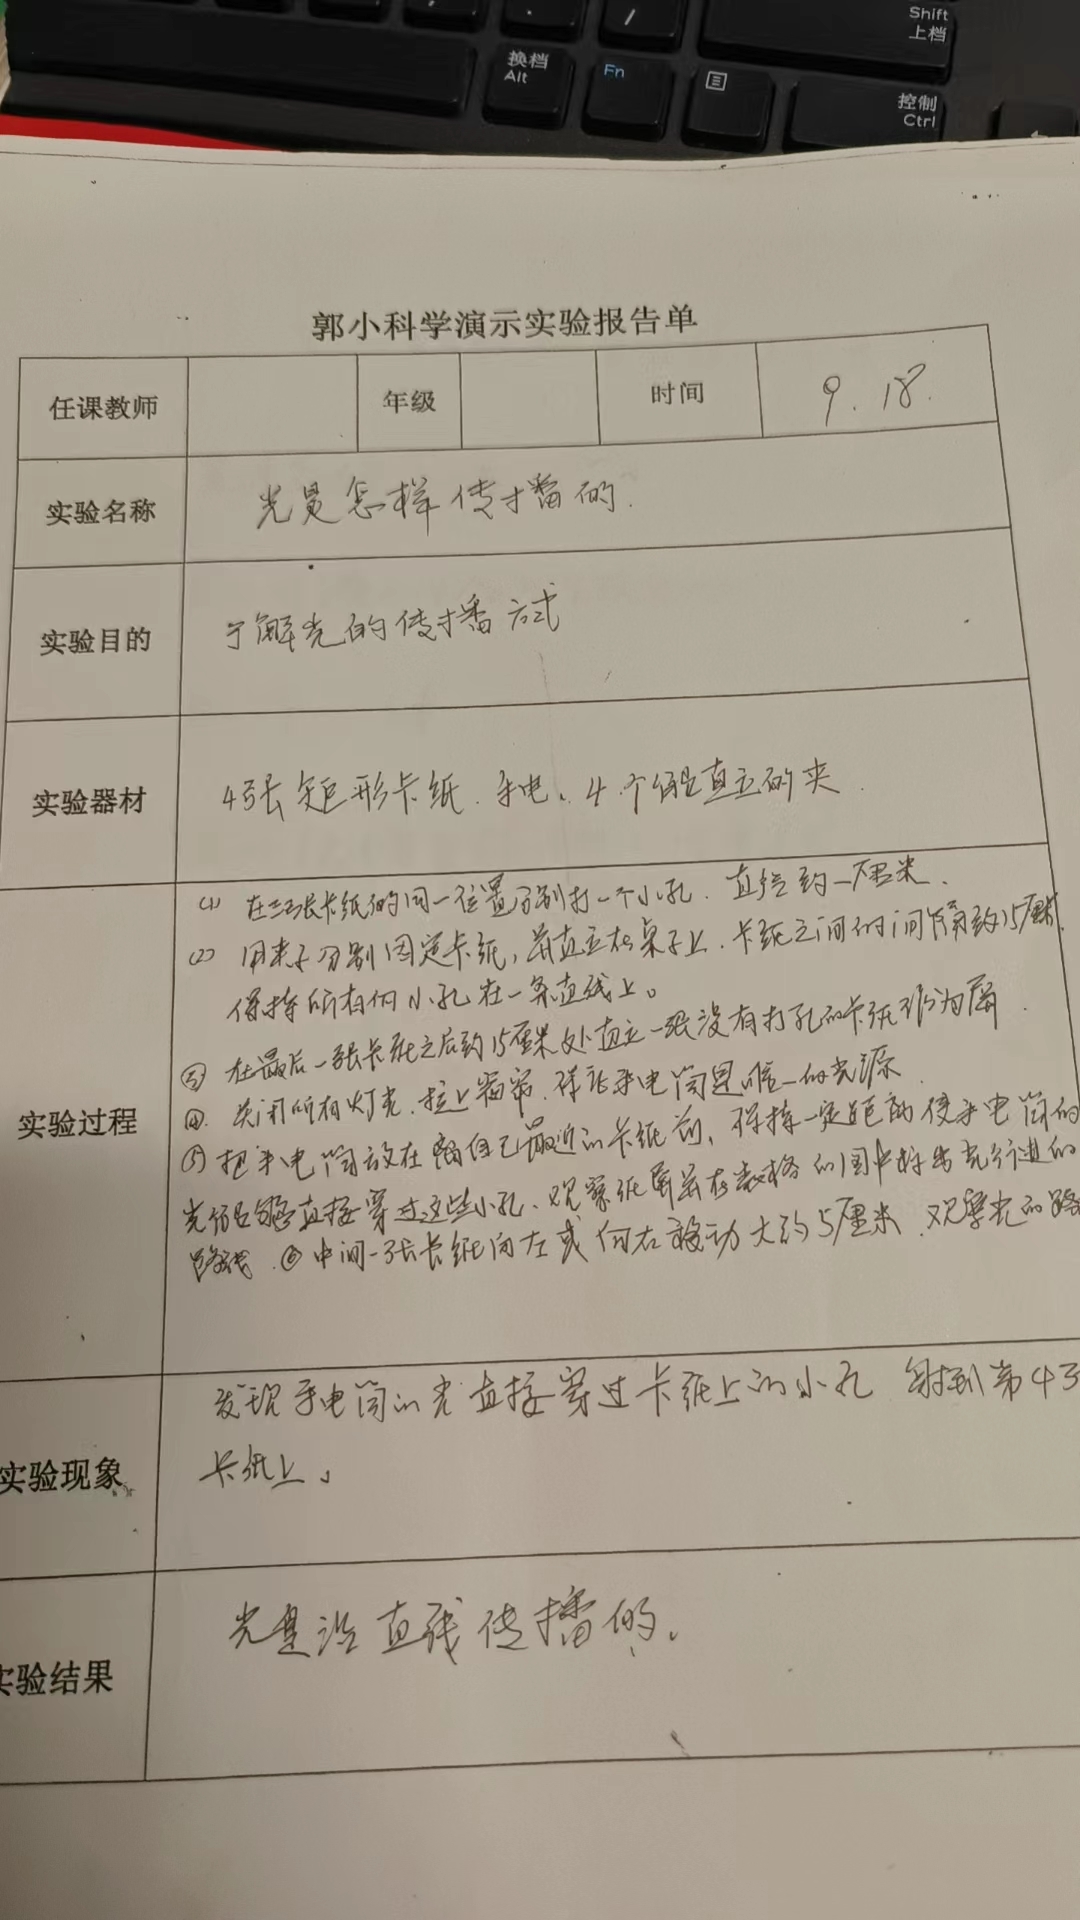 Shift
上档
换档
Alt
Fn
控制
Ctrl
郭小科学演示实验报告单
任课教师 年级 时间 9.18.
实验名称 光是怎样传播的.
实验目的 了解光的传播方式
实验器材 4张矩形卡纸、手电、4个能直立的夹.
(1) 在三张卡纸的同一位置分别打一个小孔.直径约一厘米.
(2) 用夹子分别固定卡纸,并直立在桌子上.卡纸之间的间隔约15厘米.
保持所有的小孔在一条直线上。
③ 在最后一张卡纸之后约15厘米处直立一张没有打孔的卡纸作为屏.
实验过程 ④.关闭所有灯光.拉上窗帘.保证手电筒是唯一的光源.
⑤ 把手电筒放在离自己最近的卡纸前,保持一定距离使手电筒的
光能够直接穿过这些小孔、观察纸屏并在表格的图中标出光行进的
路线.⑥中间一张卡纸向左或向右移动大约5厘米.观察光的路
发现手电筒的光直接穿过卡纸上的小孔 射到第4张
实验现象 卡纸上。
光是沿直线传播的.
实验结果